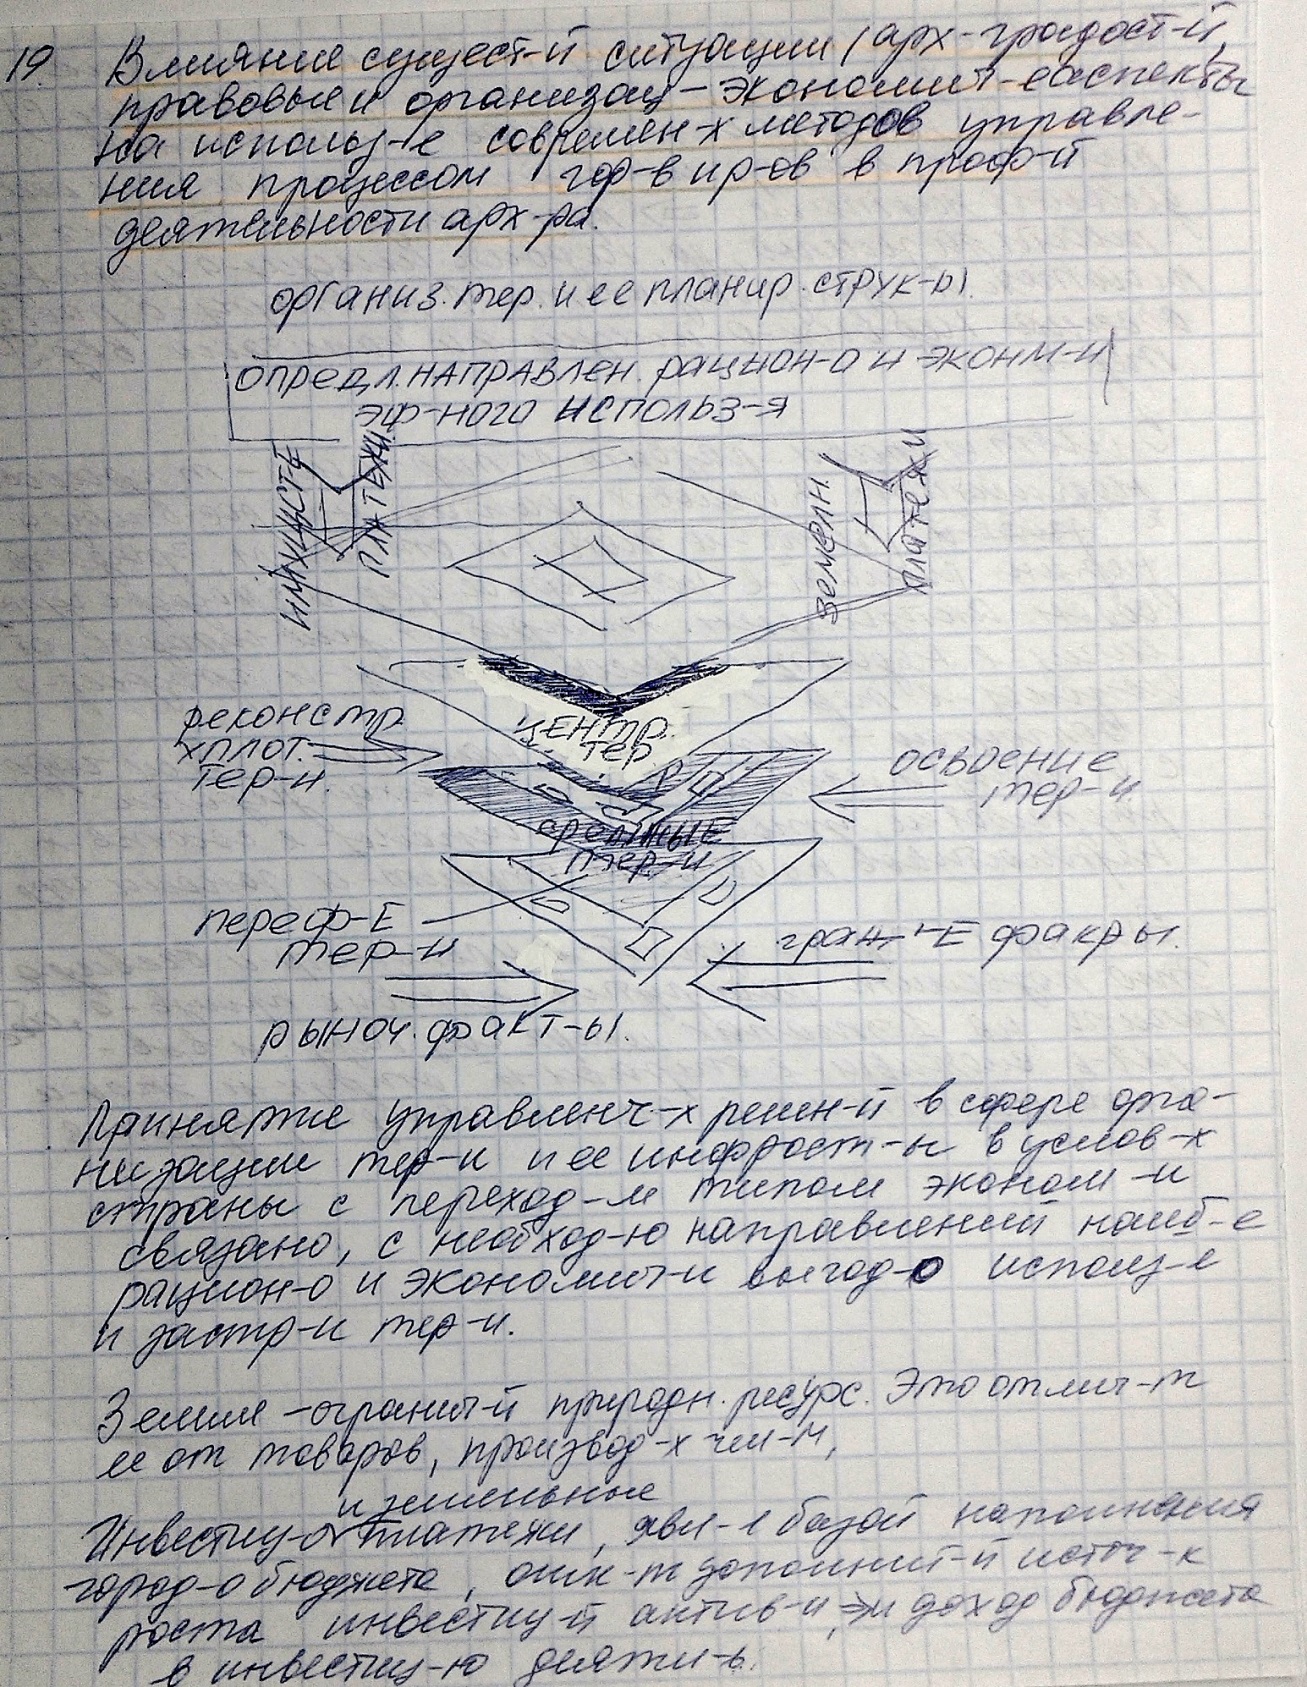 19. Влияние сущест-й ситуации (арх-градост-й,
правовые и организац-экономич-е аспекты
на использ-е современ-х методов управле-
ния процессом гор-в и р-ов в проф-й
деятельности арх-ра.
организ. тер. и ее планир. струк-ы.
опредл. направлен. рацион-о и эконм-и
эф-ного использ-я
имущест-е платежи
земелн. платежи
центр.
тер.
реконстр.
хплот.
тер-и.
освоение
тер-и
срединные
тер-и
переф-е
тер-и
факторы.
рыноч. факт-ы.
Принятие управленч-х решен-й в сфере орга-
низации тер-и и ее инфраст-ы в услов-х
страны с переход-м типом эконом-и
связано, с необход-ю направлений наиб-е
рацион-о и экономич-и выгод-о использ-е
и застр-и тер-и.
Земля - огранич-й природн. ресурс. Это отлич-т
ее от товаров, производ-х чел-м,
и земельные
Инвестиц-е платежи, явл-е базой наполнения
город-о бюджета, дополнит-й источ-к
роста инвестиц-й актив-и, доход бюджета
в инвестиц-ю деят-ь.